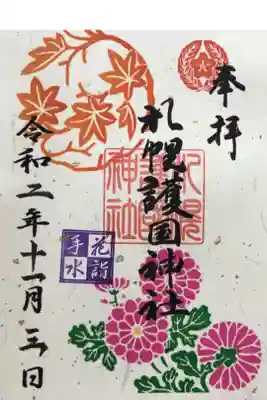 奉拝
札幌護国神社
札幌護国神社
花詣
手水
令和二年十一月三日